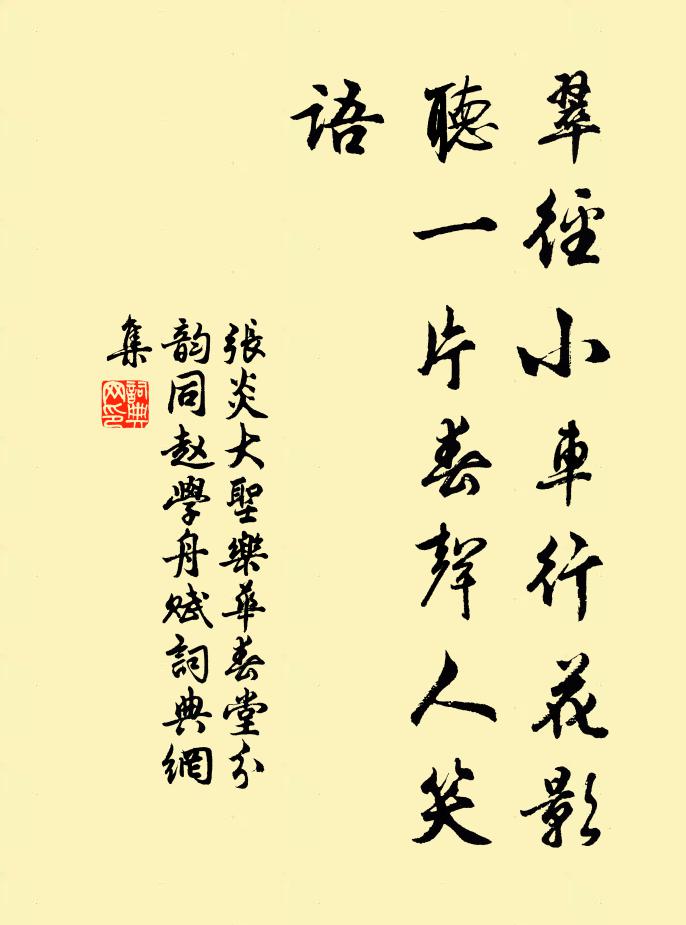 翠徑小車行花影
聽一片春聲人笑
語
張炎大聖樂華春堂分
韵同赵學舟賦詞典網
集
詞典
网印